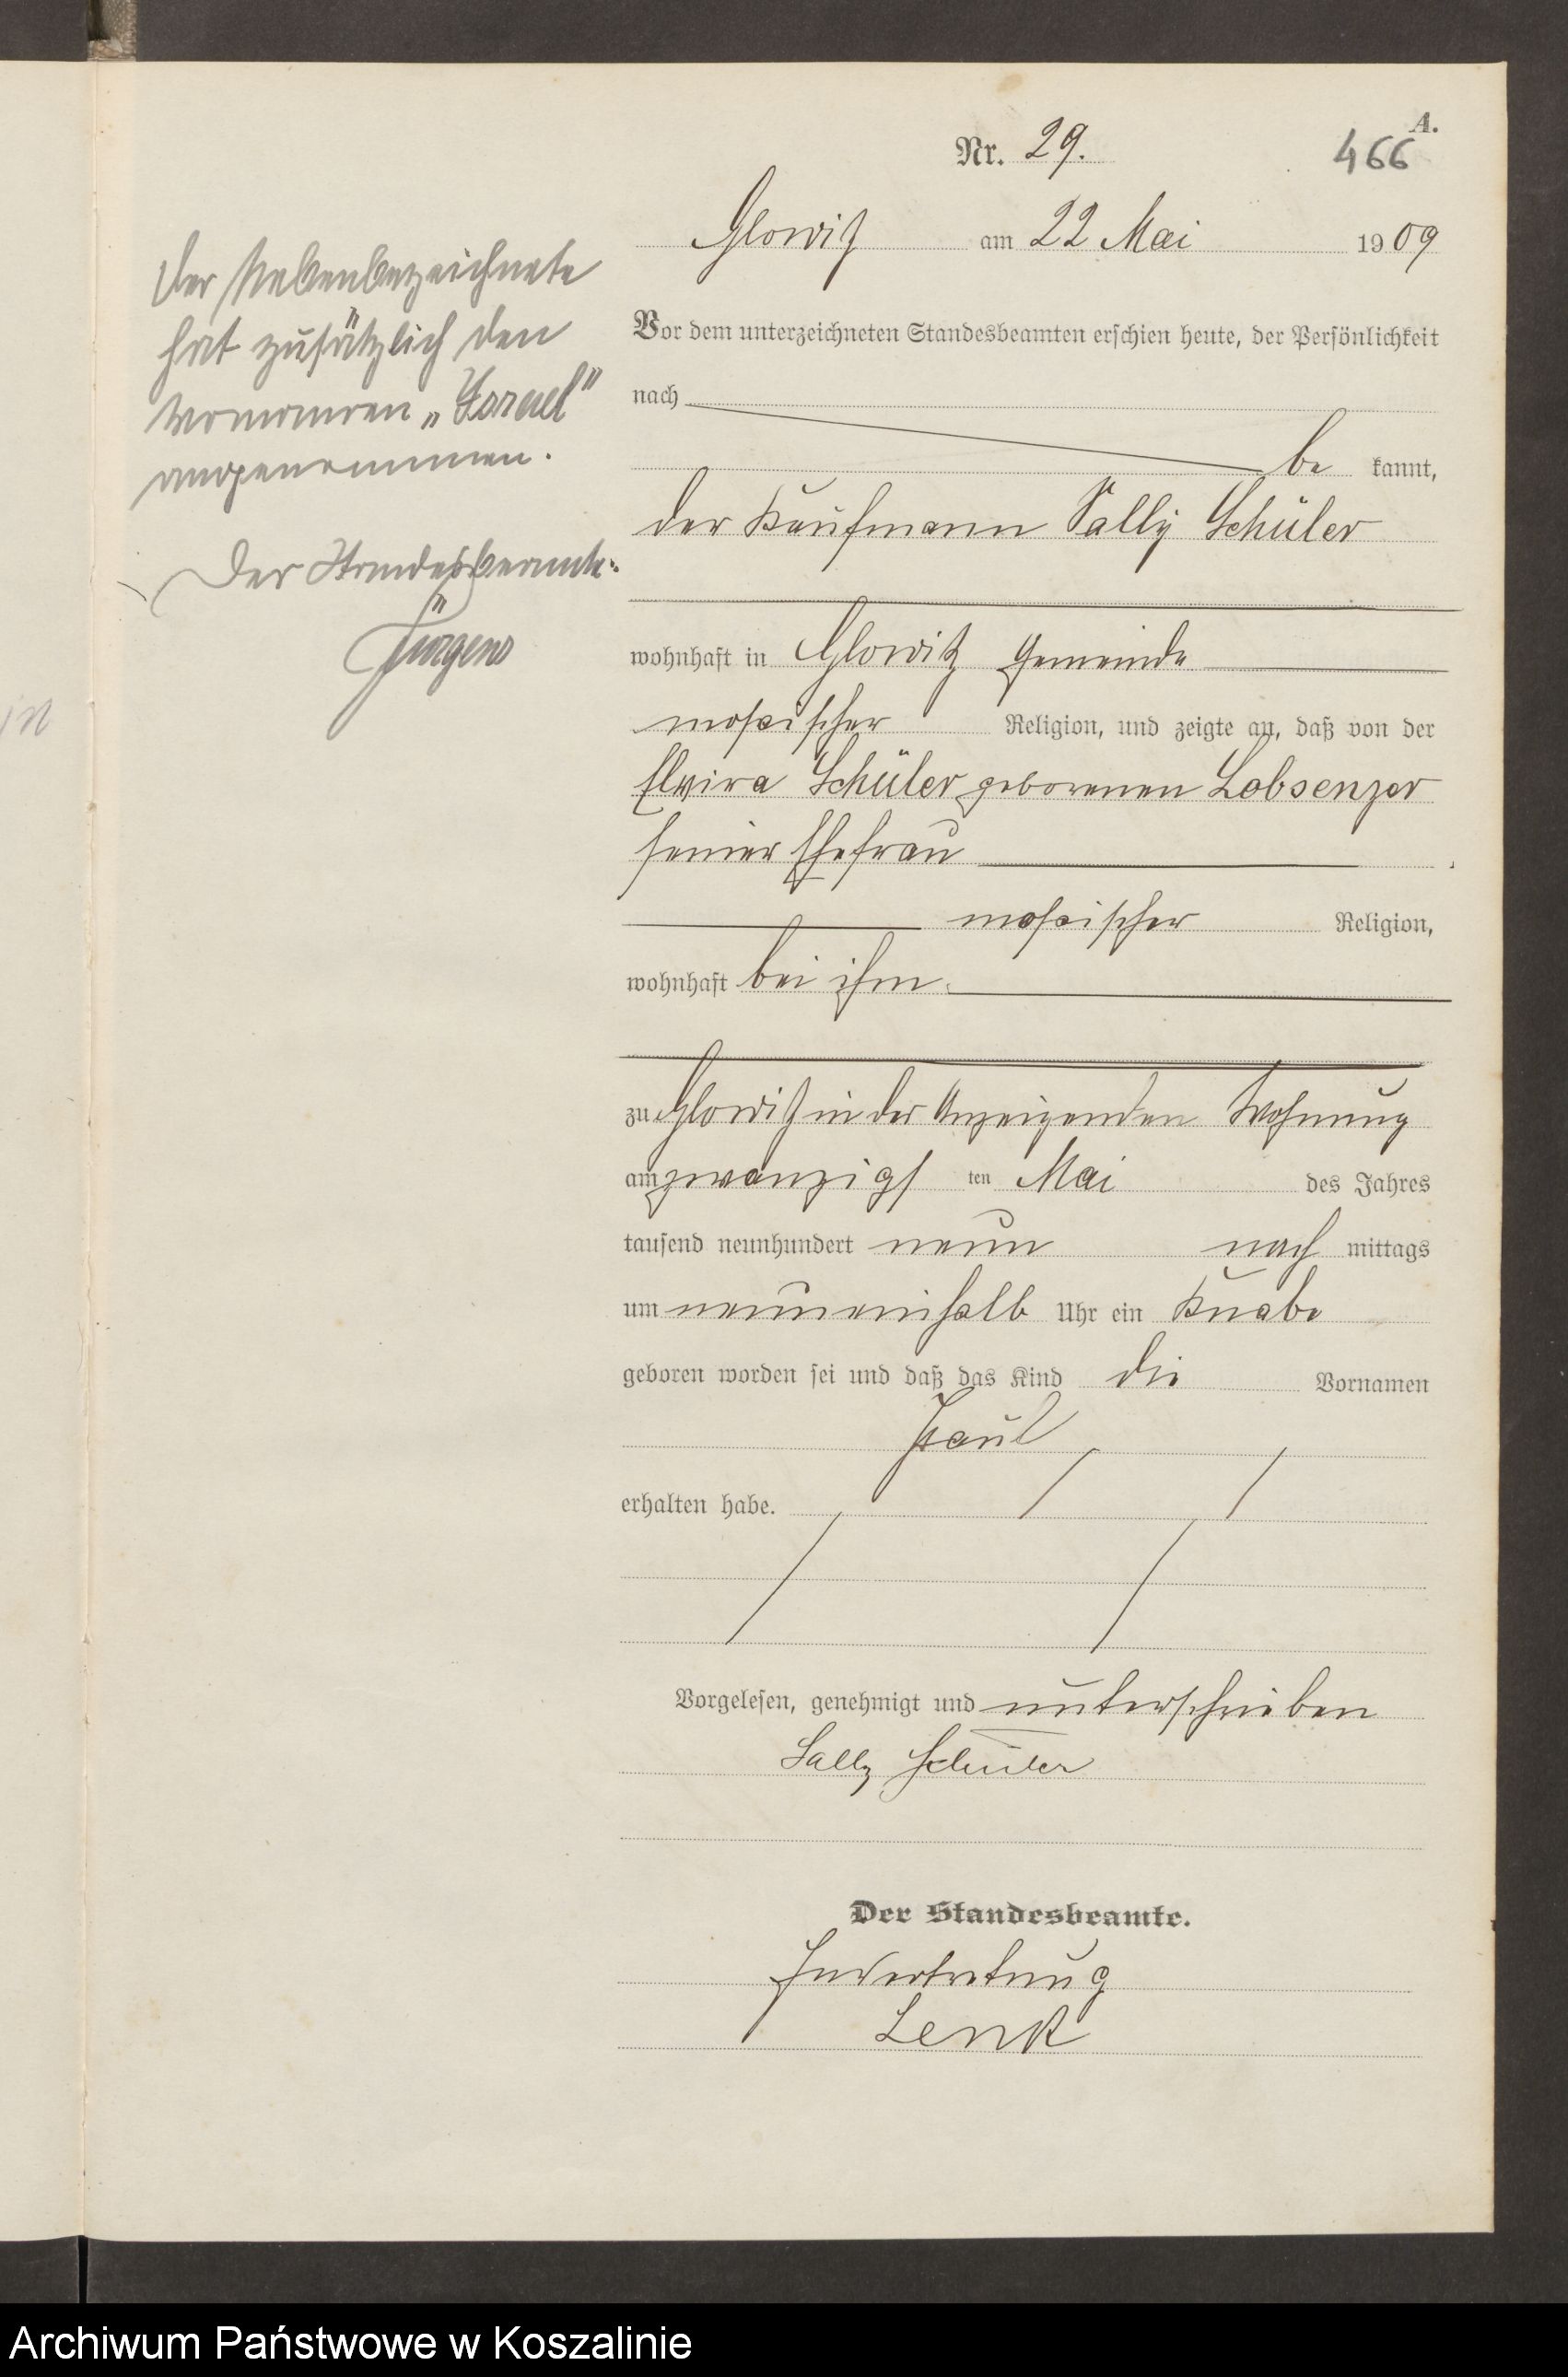 A.
Nr. 29.
466
Glowitz am 22 Mai 1909
Der Nebenbezeichnete
hat zusätzlich den
Vornamen „Israel"
angenommen.
Der Standesbeamte:
Jürgens
Vor dem unterzeichneten Standesbeamten erschien heute, der Persönlichkeit
nach
be kannt,
der Kaufmann Sally Schüler
wohnhaft in Glowitz Gemeinde
mosaischer Religion, und zeigte an, daß von der
Elvira Schüler geborenen Lobsenzer
seiner Ehefrau
mosaischer Religion,
wohnhaft bei ihm
zu Glowitz in der Anzeigenden Wohnung
am zwanzigs ten Mai des Jahres
tausend neunhundert neun nach mittags
um neuneinhalb Uhr ein Knabe
geboren worden sei und daß das Kind die Vornamen
Paul
erhalten habe.
Vorgelesen, genehmigt und unterschrieben
Sally Schüler
Der Standesbeamte.
In Vertretung
Lenk
Archiwum Państwowe w Koszalinie